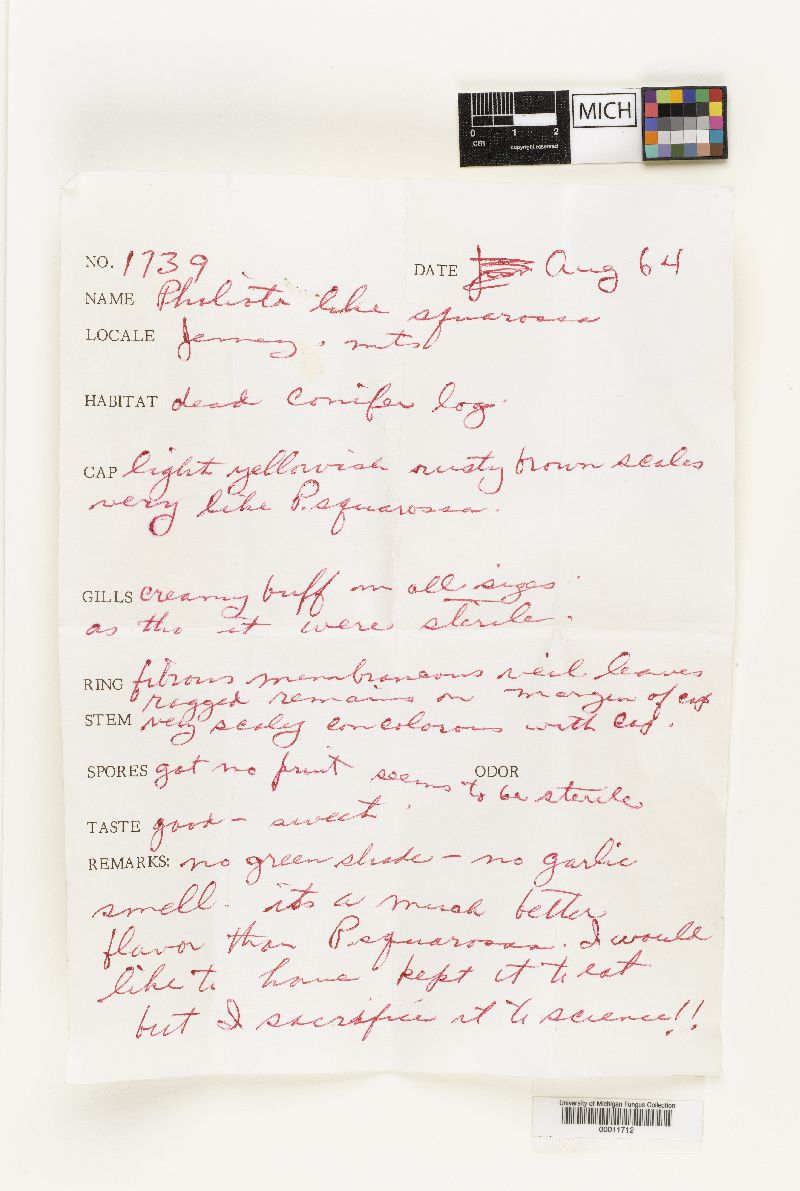 0 1 2
cm
copyright reserved
MICH
NO. 1739 DATE Aug 64
NAME Pholiota like squarossa
LOCALE Jemez mts
HABITAT dead conifer log
CAP light yellowish rusty brown scales
very like P. squarossa.
GILLS creamy buff in all sizes
as tho it were sterile.
RING fibrous membraneous veil leaves
ragged remains on margin of cap
STEM very scaley concolorous with cap.
SPORES got no print seems to be sterile ODOR
TASTE good – sweet
REMARKS: no green shade – no garlic
smell. its a much better
flavor than P squarossa. I would
like to have kept it to eat
but I sacrifice it to science!!
University of Michigan Fungus Collection
00011712